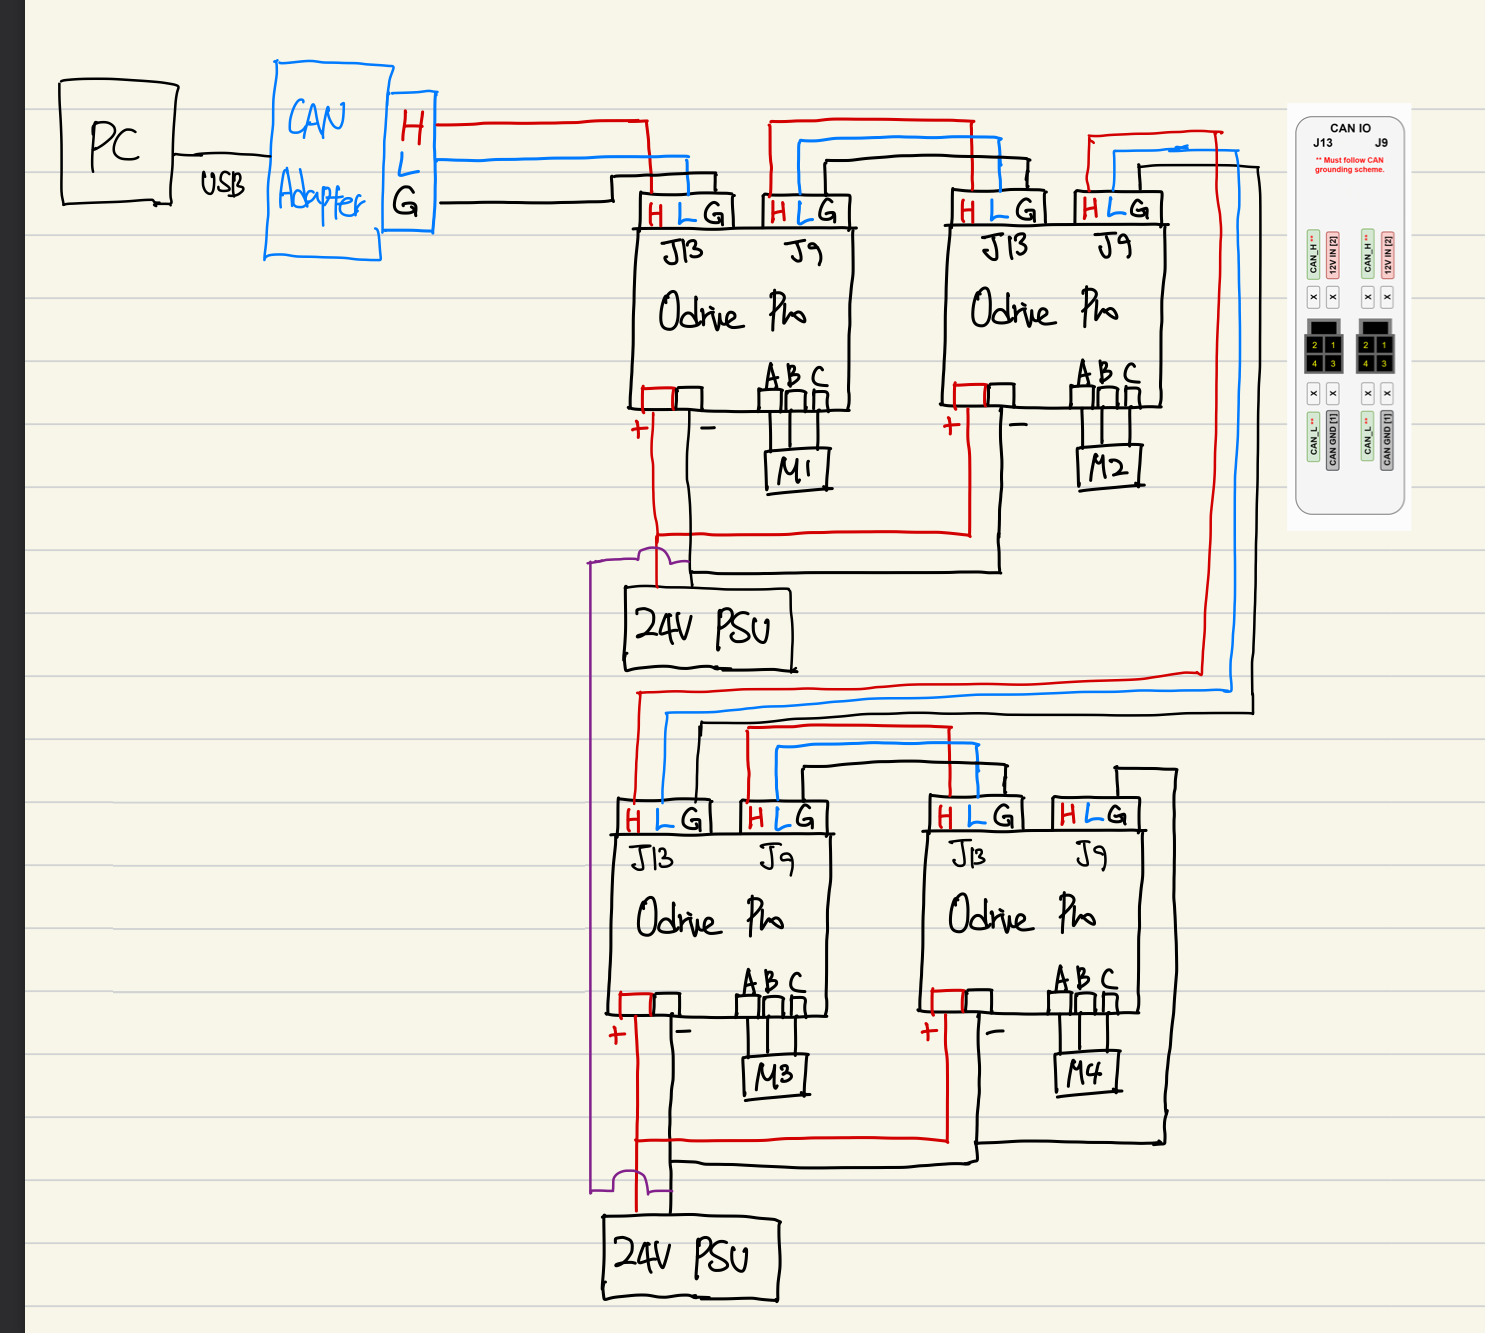 PC
USB
CAN
Adapter
H
L
G
H L G
H L G
J13
J9
Odrive Pro
A B C
+
-
M1
H L G
H L G
J13
J9
Odrive Pro
A B C
+
-
M2
24V PSU
CAN IO
J13 J9
** Must follow CAN
grounding scheme.
CAN_H **
12V IN [2]
CAN_H **
12V IN [2]
X X X X
2 1 2 1
4 3 4 3
X X X X
CAN_L **
CAN GND [1]
CAN_L **
CAN GND [1]
H L G
H L G
J13
J9
Odrive Pro
A B C
+
-
M3
H L G
H L G
J13
J9
Odrive Pro
A B C
+
-
M4
24V PSU